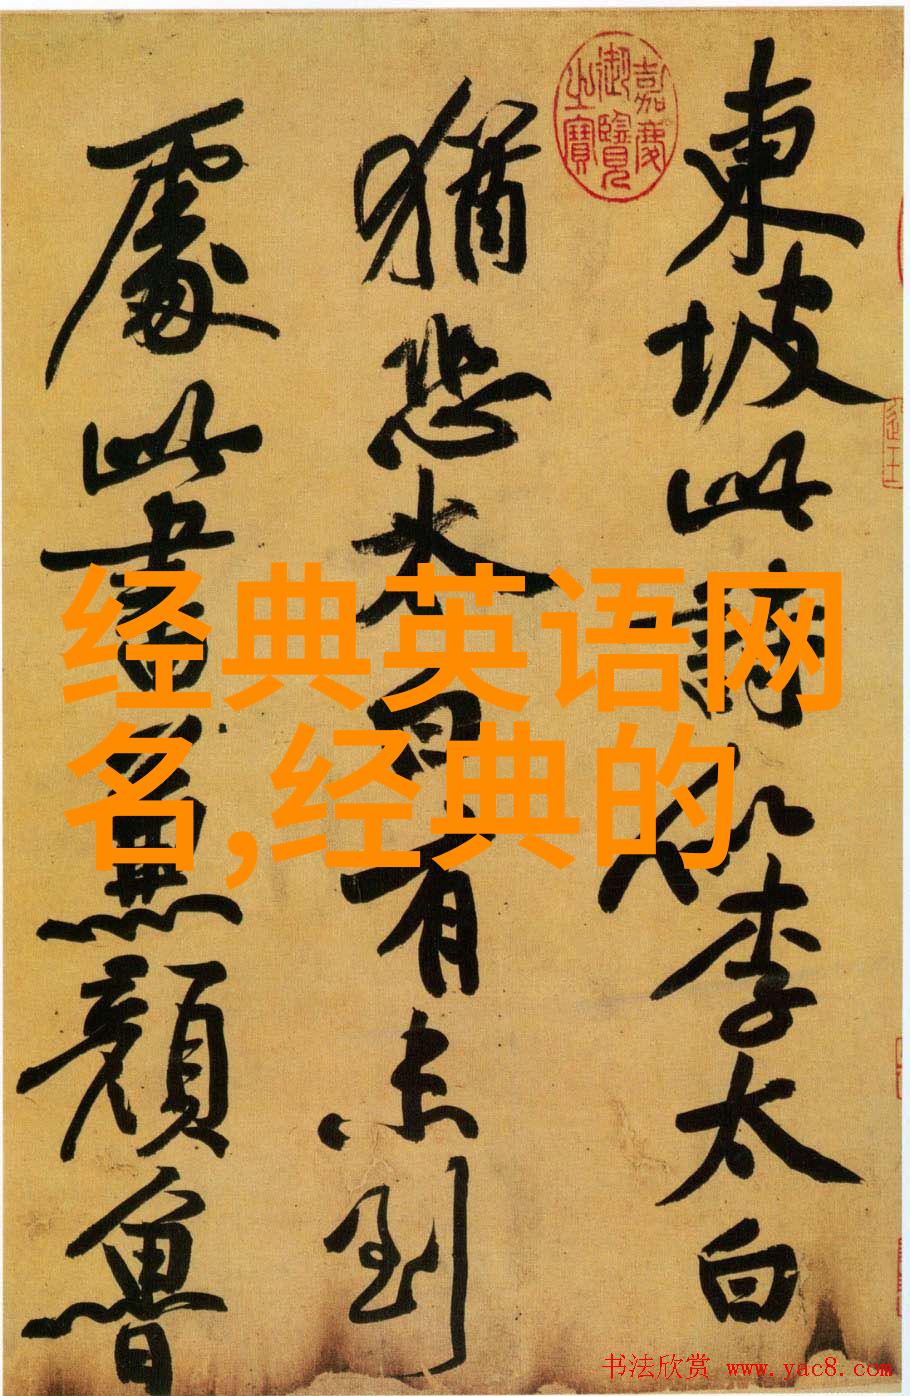 東坡此詩似李太白
猶恐太白有未到
處此書兼顏魯
嘉慶
御覽
之寶
经典英语网
名,经典的
书法欣赏 www.yac8.com